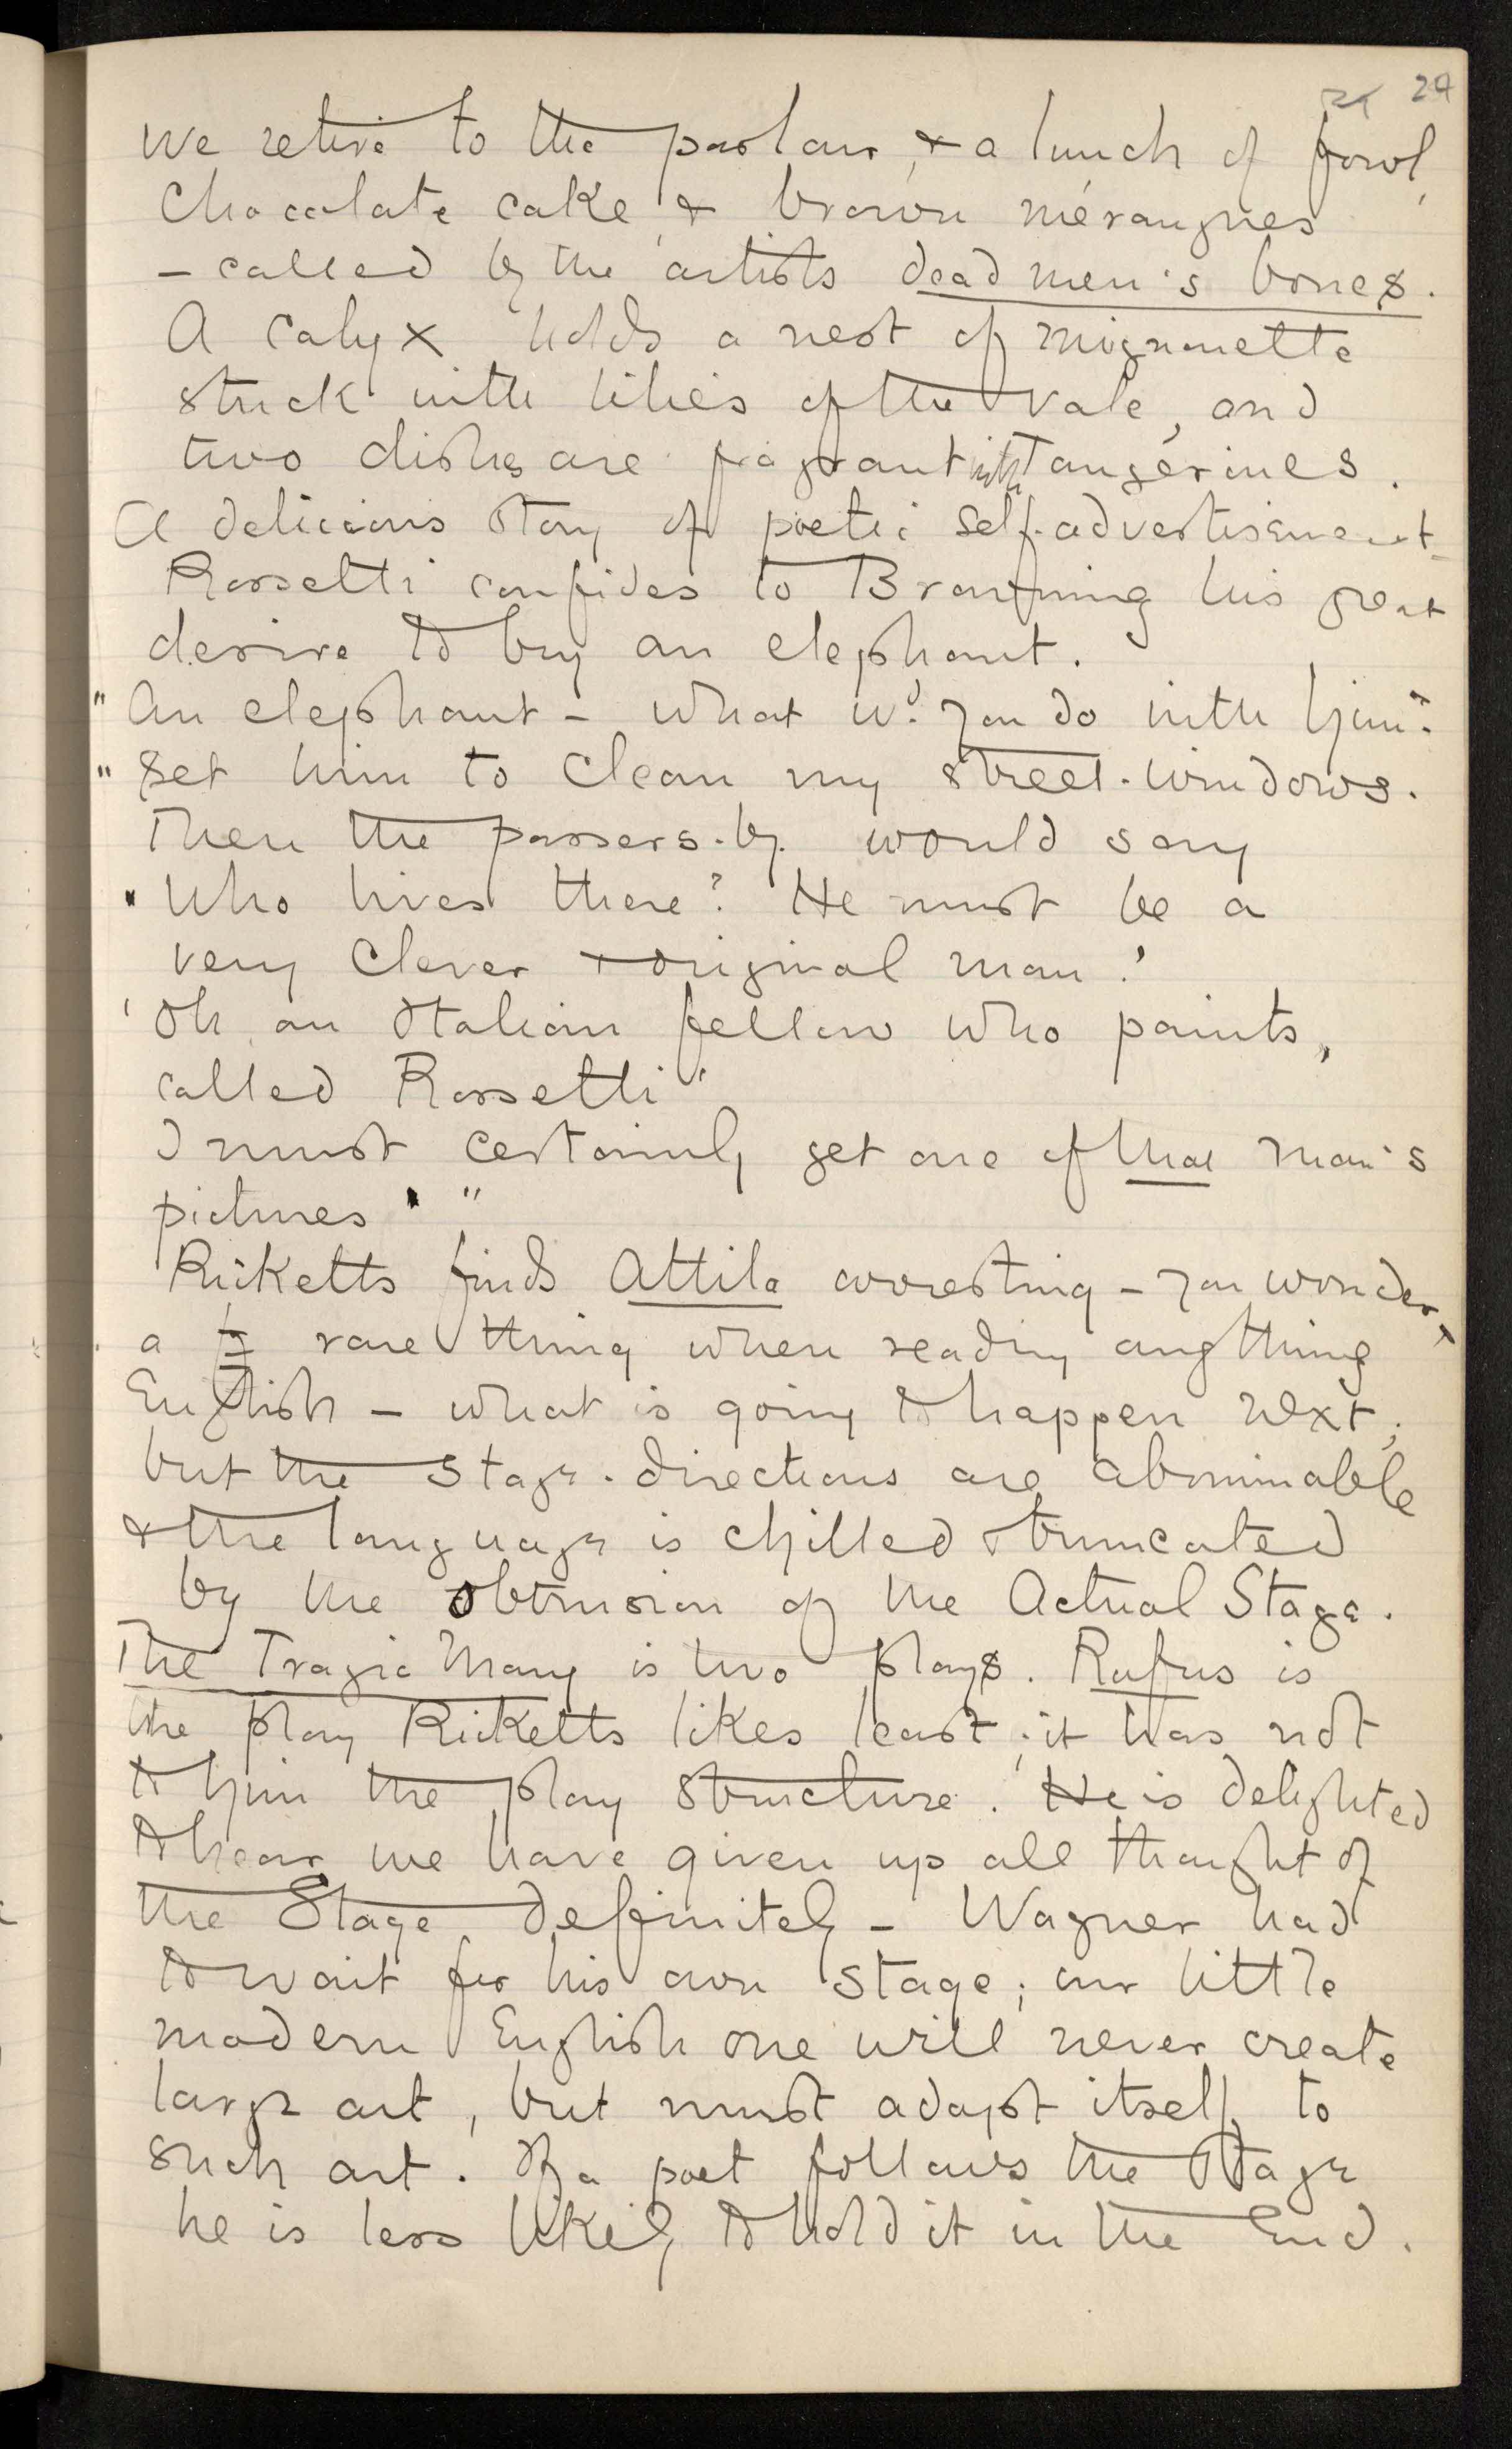 29
We retire to the parlour, & a lunch of fowl,
Chocolate cake, & brown mérangues
– called by the artists dead men's bones.
A Calyx holds a nest of mignonette
stuck with lilies of the vale, and
two dishes are fragrant with Tangerines.
A delicious story of poetic self-advertisement –
Rossetti confides to Browning his great
desire to buy an elephant.
"An elephant – what wd. you do with him"?
"Set him to clean my street-windows.
Then the passers-by would say
"Who lives there? He must be a
very clever & original man!'
'Oh an Italian fellow who paints,
called Rossetti'
I must certainly get one of that man's
pictures' "
Ricketts finds Attila arresting – you wonder,
a rare thing when reading anything
English – what is going to happen next;
but the Stage-directions are abominable
& the language is chilled & truncated
by the obtrusion of the Actual Stage.
The Tragic Mary is two plays. Rufus is
the play Ricketts likes least; it has not
to him the play structure. He is delighted
to hear we have given up all thought of
the Stage definitely – Wagner had
to wait for his own stage; our little
modern English one will never create
large art, but must adapt itself to
such art. If a poet follows the Stage
he is less likely to hold it in the End.